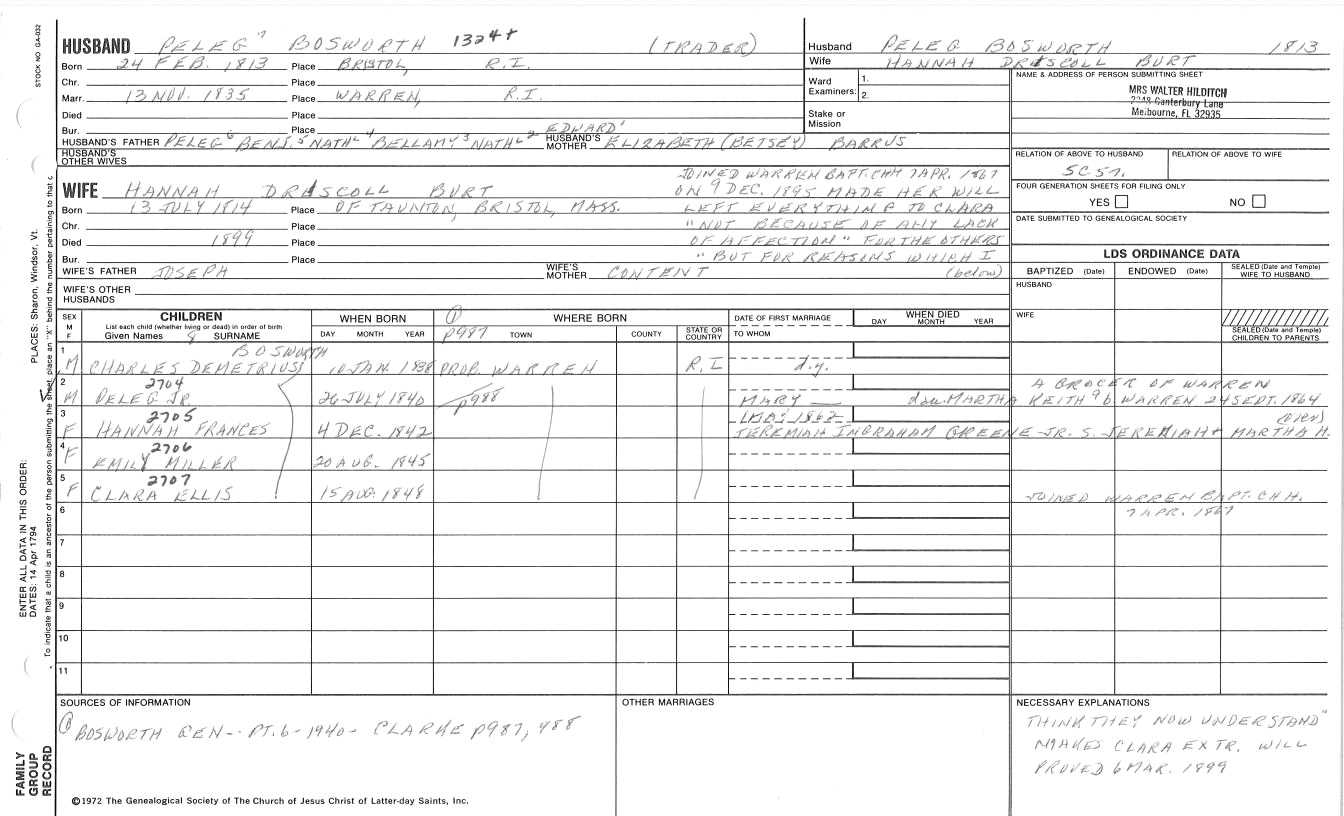 STOCK NO GA-032
PLACES: Sharon, Windsor, Vt.
ENTER ALL DATA IN THIS ORDER:
DATES: 14 Apr 1794
To indicate that a child is an ancestor of the person submitting the sheet, place an "X" behind the number pertaining to that c
FAMILY GROUP RECORD
HUSBAND PELEG 7 BOSWORTH 1324+ (TRADER)
Born 24 FEB. 1813 Place BRISTOL, R.I.
Chr. Place
Marr. 13 NOV. 1835 Place WARREN, R.I.
Died Place
Bur. Place
EDWARD 1
HUSBAND'S FATHER PELEG 6 BENJ. 5 NATHL 4 BELLAMY 3 NATHL 2 HUSBAND'S MOTHER ELIZABETH (BETSEY) BARRUS
HUSBAND'S OTHER WIVES
Husband PELEG BOSWORTH 1813
Wife HANNAH DRISCOLL BURT
Ward Examiners: 1.
2.
Stake or Mission
NAME & ADDRESS OF PERSON SUBMITTING SHEET
MRS WALTER HILDITCH
2248 Canterbury Lane
Melbourne, FL 32935
RELATION OF ABOVE TO HUSBAND RELATION OF ABOVE TO WIFE
5C5r.
FOUR GENERATION SHEETS FOR FILING ONLY
YES NO
DATE SUBMITTED TO GENEALOGICAL SOCIETY
WIFE HANNAH DRISCOLL BURT
Born 13 JULY 1814 Place OF TAUNTON, BRISTOL, MASS.
Chr. Place
Died 1899 Place
Bur. Place
WIFE'S FATHER JOSEPH WIFE'S MOTHER CONTENT (below)
WIFE'S OTHER HUSBANDS
JOINED WARREN BAPT. CHH 7 APR. 1867
ON 9 DEC. 1895 MADE HER WILL
LEFT EVERYTHING TO CLARA
"NOT BECAUSE OF ANY LACK
OF AFFECTION" FOR THE OTHERS
"BUT FOR REASONS WHICH I
LDS ORDINANCE DATA
BAPTIZED (Date) ENDOWED (Date) SEALED (Date and Temple) WIFE TO HUSBAND
HUSBAND
WIFE
SEALED (Date and Temple) CHILDREN TO PARENTS
SEX M F
CHILDREN
List each child (whether living or dead) in order of birth
Given Names 8 SURNAME
WHEN BORN
DAY MONTH YEAR
① p987
WHERE BORN
TOWN COUNTY STATE OR COUNTRY
DATE OF FIRST MARRIAGE
TO WHOM
WHEN DIED
DAY MONTH YEAR
BOSWORTH
1 M CHARLES DEMETRIUS 10 JAN. 1838 PROB. WARREN R.I d.y.
2 M 2704 PELEG JR. 26 JULY 1840 p988 MARY —— dau. MARTHA KEITH 9 b WARREN 24 SEPT. 1864
A GROCER OF WARREN
3 F 2705 HANNAH FRANCES 4 DEC. 1842 JEREMIAH INGRAHAM GREENE JR. S. JEREMIAH + MARTHA H.
4 F 2706 EMILY MILLER 20 AUG. 1845
5 F 2707 CLARA ELLIS 15 AUG. 1848 JOINED WARREN BAPT. CHH.
7 APR. 1867
6
7
8
9
10
11
SOURCES OF INFORMATION
① BOSWORTH GEN-- PT. 6-1940- CLARKE p987, 988
©1972 The Genealogical Society of The Church of Jesus Christ of Latter-day Saints, Inc.
OTHER MARRIAGES
NECESSARY EXPLANATIONS
THINK THEY NOW UNDERSTAND"
MAKES CLARA EXTR. WILL
PROVED 6 MAR. 1899